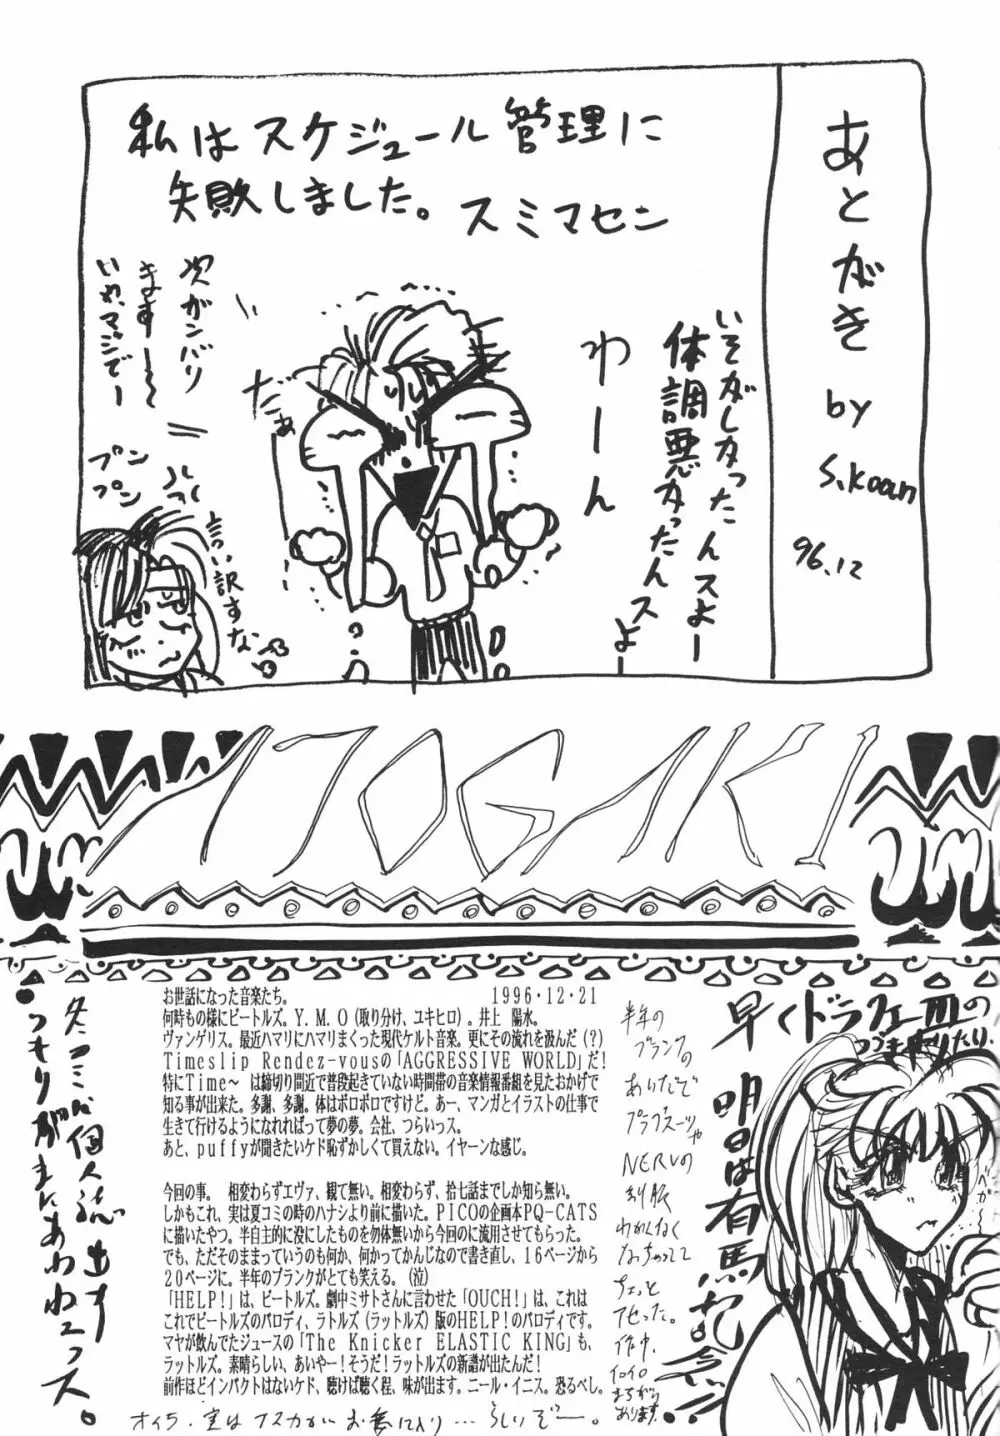 あとがき
by
S.Koan
96.12
私はスケジュール管理に
失敗しました。スミマセン
いそがしかったんスよー
体調悪かったんスよー
わーん
だぁ
次ガンバリ
ます〜〜
いや、マジでー
プン
プン
言い訳すな
ATOGAKI
お世話になった音楽たち。 1996・12・21
何時もの様にビートルズ。Y.M.O(取り分け、ユキヒロ)。井上 陽水。
ヴァンゲリス。最近ハマリにハマリまくった現代ケルト音楽。更にその流れを汲んだ(？)
Timeslip Rendez-vousの「AGGRESSIVE WORLD」だ！
特にTime〜 は締切り間近で普段起きていない時間帯の音楽情報番組を見たおかげで
知る事が出来た。多謝、多謝。体はボロボロですけど。あー、マンガとイラストの仕事で
生きて行けるようになれればって夢の夢。会社、つらいっス。
あと、puffyが聞きたいケド恥ずかしくて買えない。イヤーンな感じ。
今回の事。 相変わらずエヴァ、観て無い。相変わらず、拾七話までしか知ら無い。
しかもこれ、実は夏コミの時のハナシより前に描いた。PICOの企画本PQ-CATS
に描いたやつ。半自主的に没にしたものを勿体無いから今回のに流用させてもらった。
でも、ただそのままっていうのも何か、何かってかんじなので書き直し、16ページから
20ページに。半年のブランクがとても笑える。(泣)
「HELP!」は、ビートルズ。劇中ミサトさんに言わせた「OUCH!」は、これは
これでビートルズのパロディ、ラトルズ(ラットルズ)版のHELP!のパロディです。
マヤが飲んでたジュースの「The Knicker ELASTIC KING」も、
ラットルズ。素晴らしい、あいやー！そうだ！ラットルズの新譜が出たんだ！
前作ほどインパクトはないケド、聴けば聴く程、味が出ます。ニール・イニス。恐るべし。
オイラ、実はアスカがお気に入り…らしいぞー。
冬コミに個人誌出す
つもりが間にあわねっス。
半年の
ブランクの
あいだで
プラグスーツや
NERVの
制服
わかんなく
なっちって
ちょっと
アセった。
作中、
イロイロ
まちがって
おります。
早くドラクエIIIの
つづき やりたい。
明日は有馬記念!!